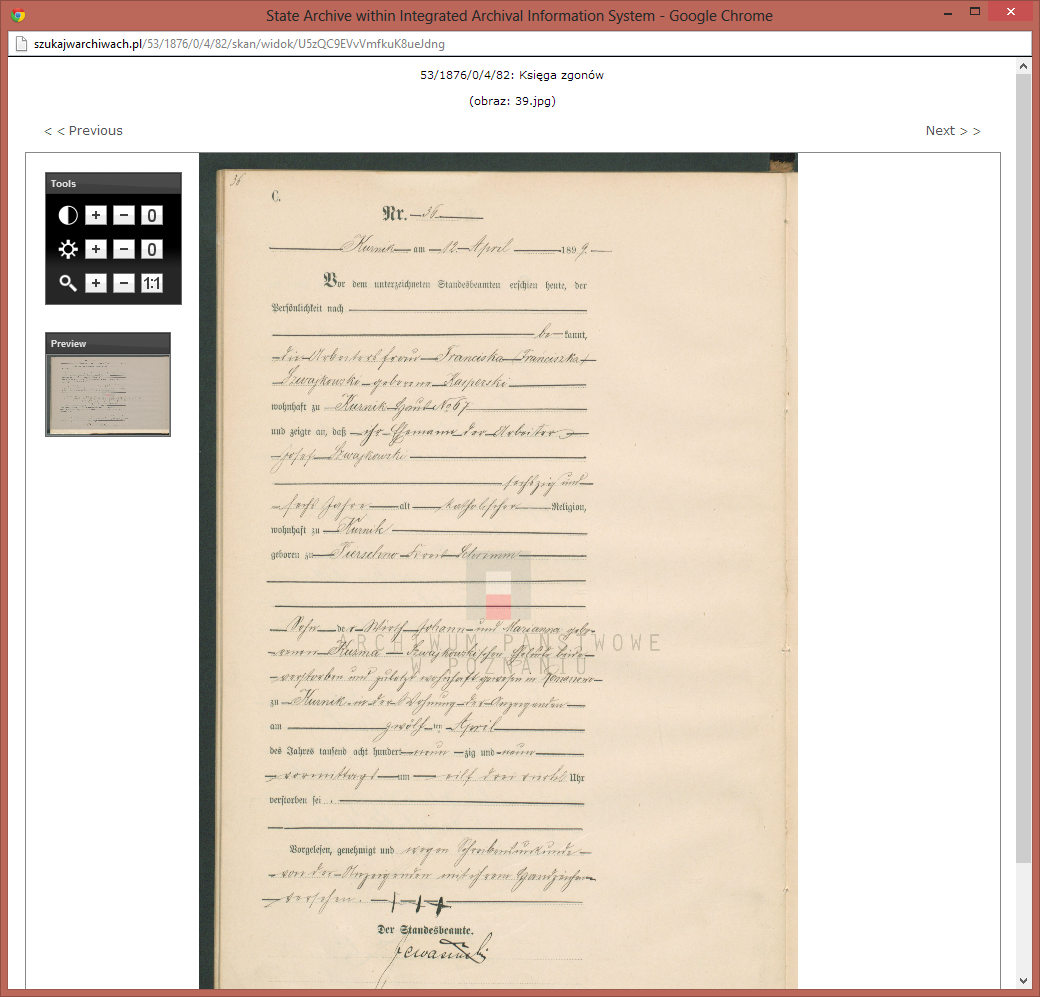 State Archive within Integrated Archival Information System - Google Chrome
szukajwarchiwach.pl/53/1876/0/4/82/skan/widok/U5zQC9EVvVmfkuK8ueJdng
53/1876/0/4/82: Księga zgonów
(obraz: 39.jpg)
< < Previous
Next > >
Tools
+ − 0
+ − 0
+ − 1:1
Preview
36
C.
Nr. 36
Kurnik am 12. April 1899.
Vor dem unterzeichneten Standesbeamten erschien heute, der
Persönlichkeit nach
be kannt,
die Arbeitersfrau Franciska (Franciszka)
Szwajkowski geborene Kasperski
wohnhaft zu Kurnik Haus No 67
und zeigte an, daß ihr Ehemann der Arbeiter
Josef Szwajkowski
sechszig und
sechs Jahre alt katholischer Religion,
wohnhaft zu Kurnik
geboren zu Kreis Schrimm
Sohn der Wirth Johann und Marianna gebo-
renen Kuzma Szwajkowskischen Eheleute beide
verstorben und zuletzt wohnhaft gewesen in
zu Kurnik in der Wohnung der Anzeigenden
am zwölf ten April
des Jahres tausend acht hundert neun zig und neun
vormittags um eilf drei viertel Uhr
verstorben sei .
Vorgelesen, genehmigt und wegen Schreibensunkunde
von der Anzeigenden mit ihrem Handzeichen
versehen. +++
Der Standesbeamte.
ARCHIWUM PAŃSTWOWE
W POZNANIU